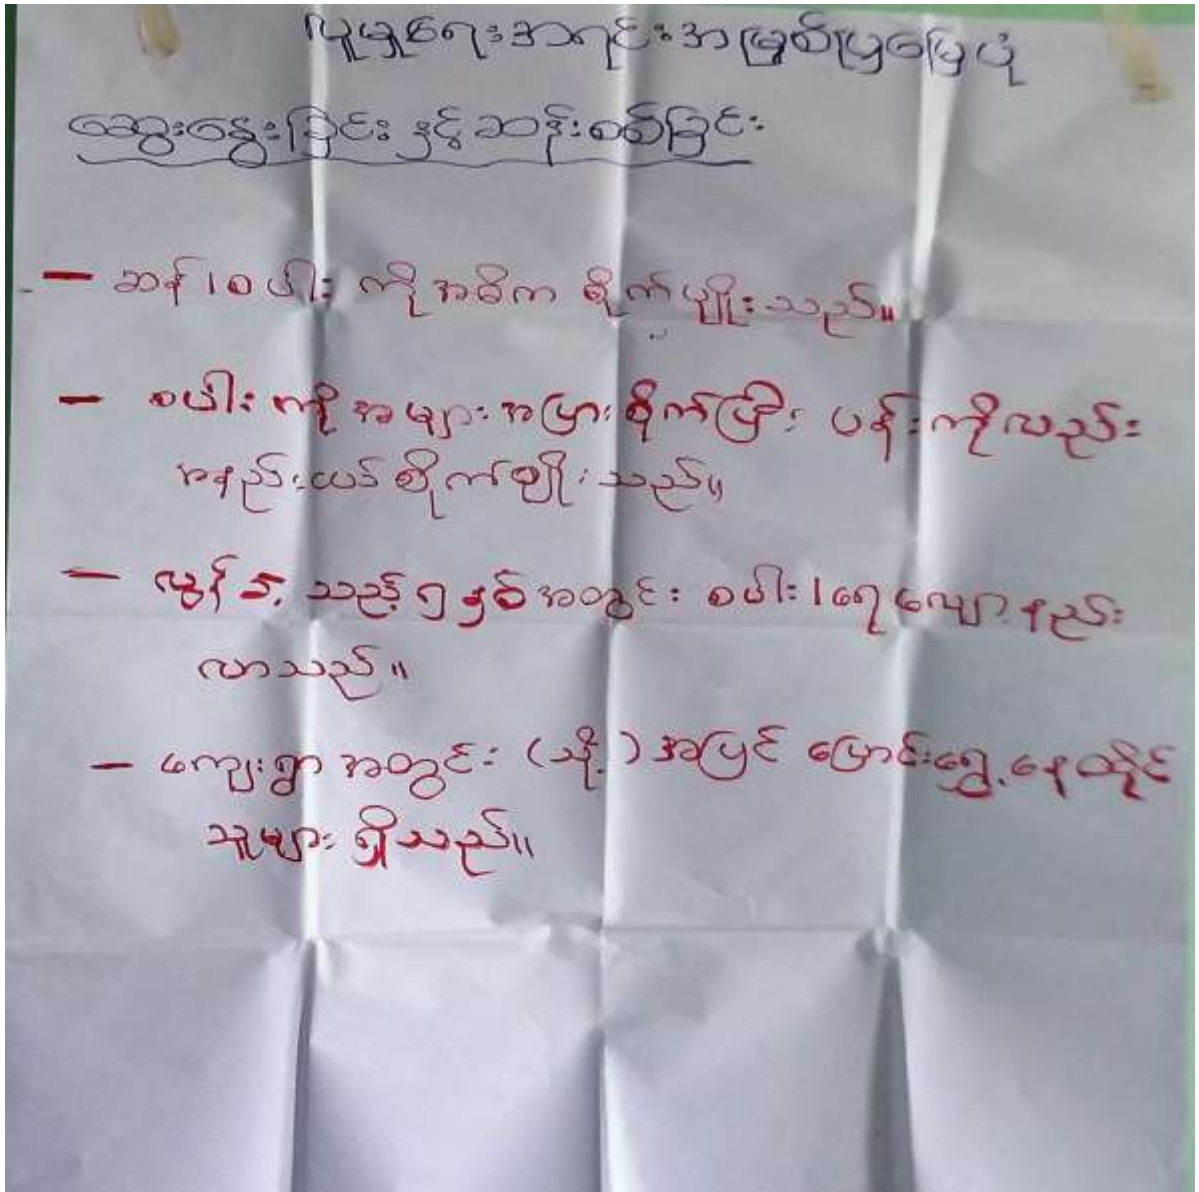 လူမှုရေးအရင်းအမြစ်ပြမြေပုံ
ဆွေးနွေးခြင်း နှင့် ဆန်းစစ်ခြင်း
- ဆန်၊စပါး ကိုအဓိက စိုက်ပျိုးသည်။
- စပါး ကို အများအပြားစိုက်ပြီး ပန်းကိုလည်း
အနည်းငယ် စိုက်ပျိုးသည်။
- လွန်ခဲ့သည့် ၅ နှစ်အတွင်း စပါး၊ရေလျော့နည်း
လာသည်။
- ကျေးရွာအတွင်း (သို့) အပြင် ပြောင်းရွှေ့နေထိုင်
သူများ ရှိသည်။